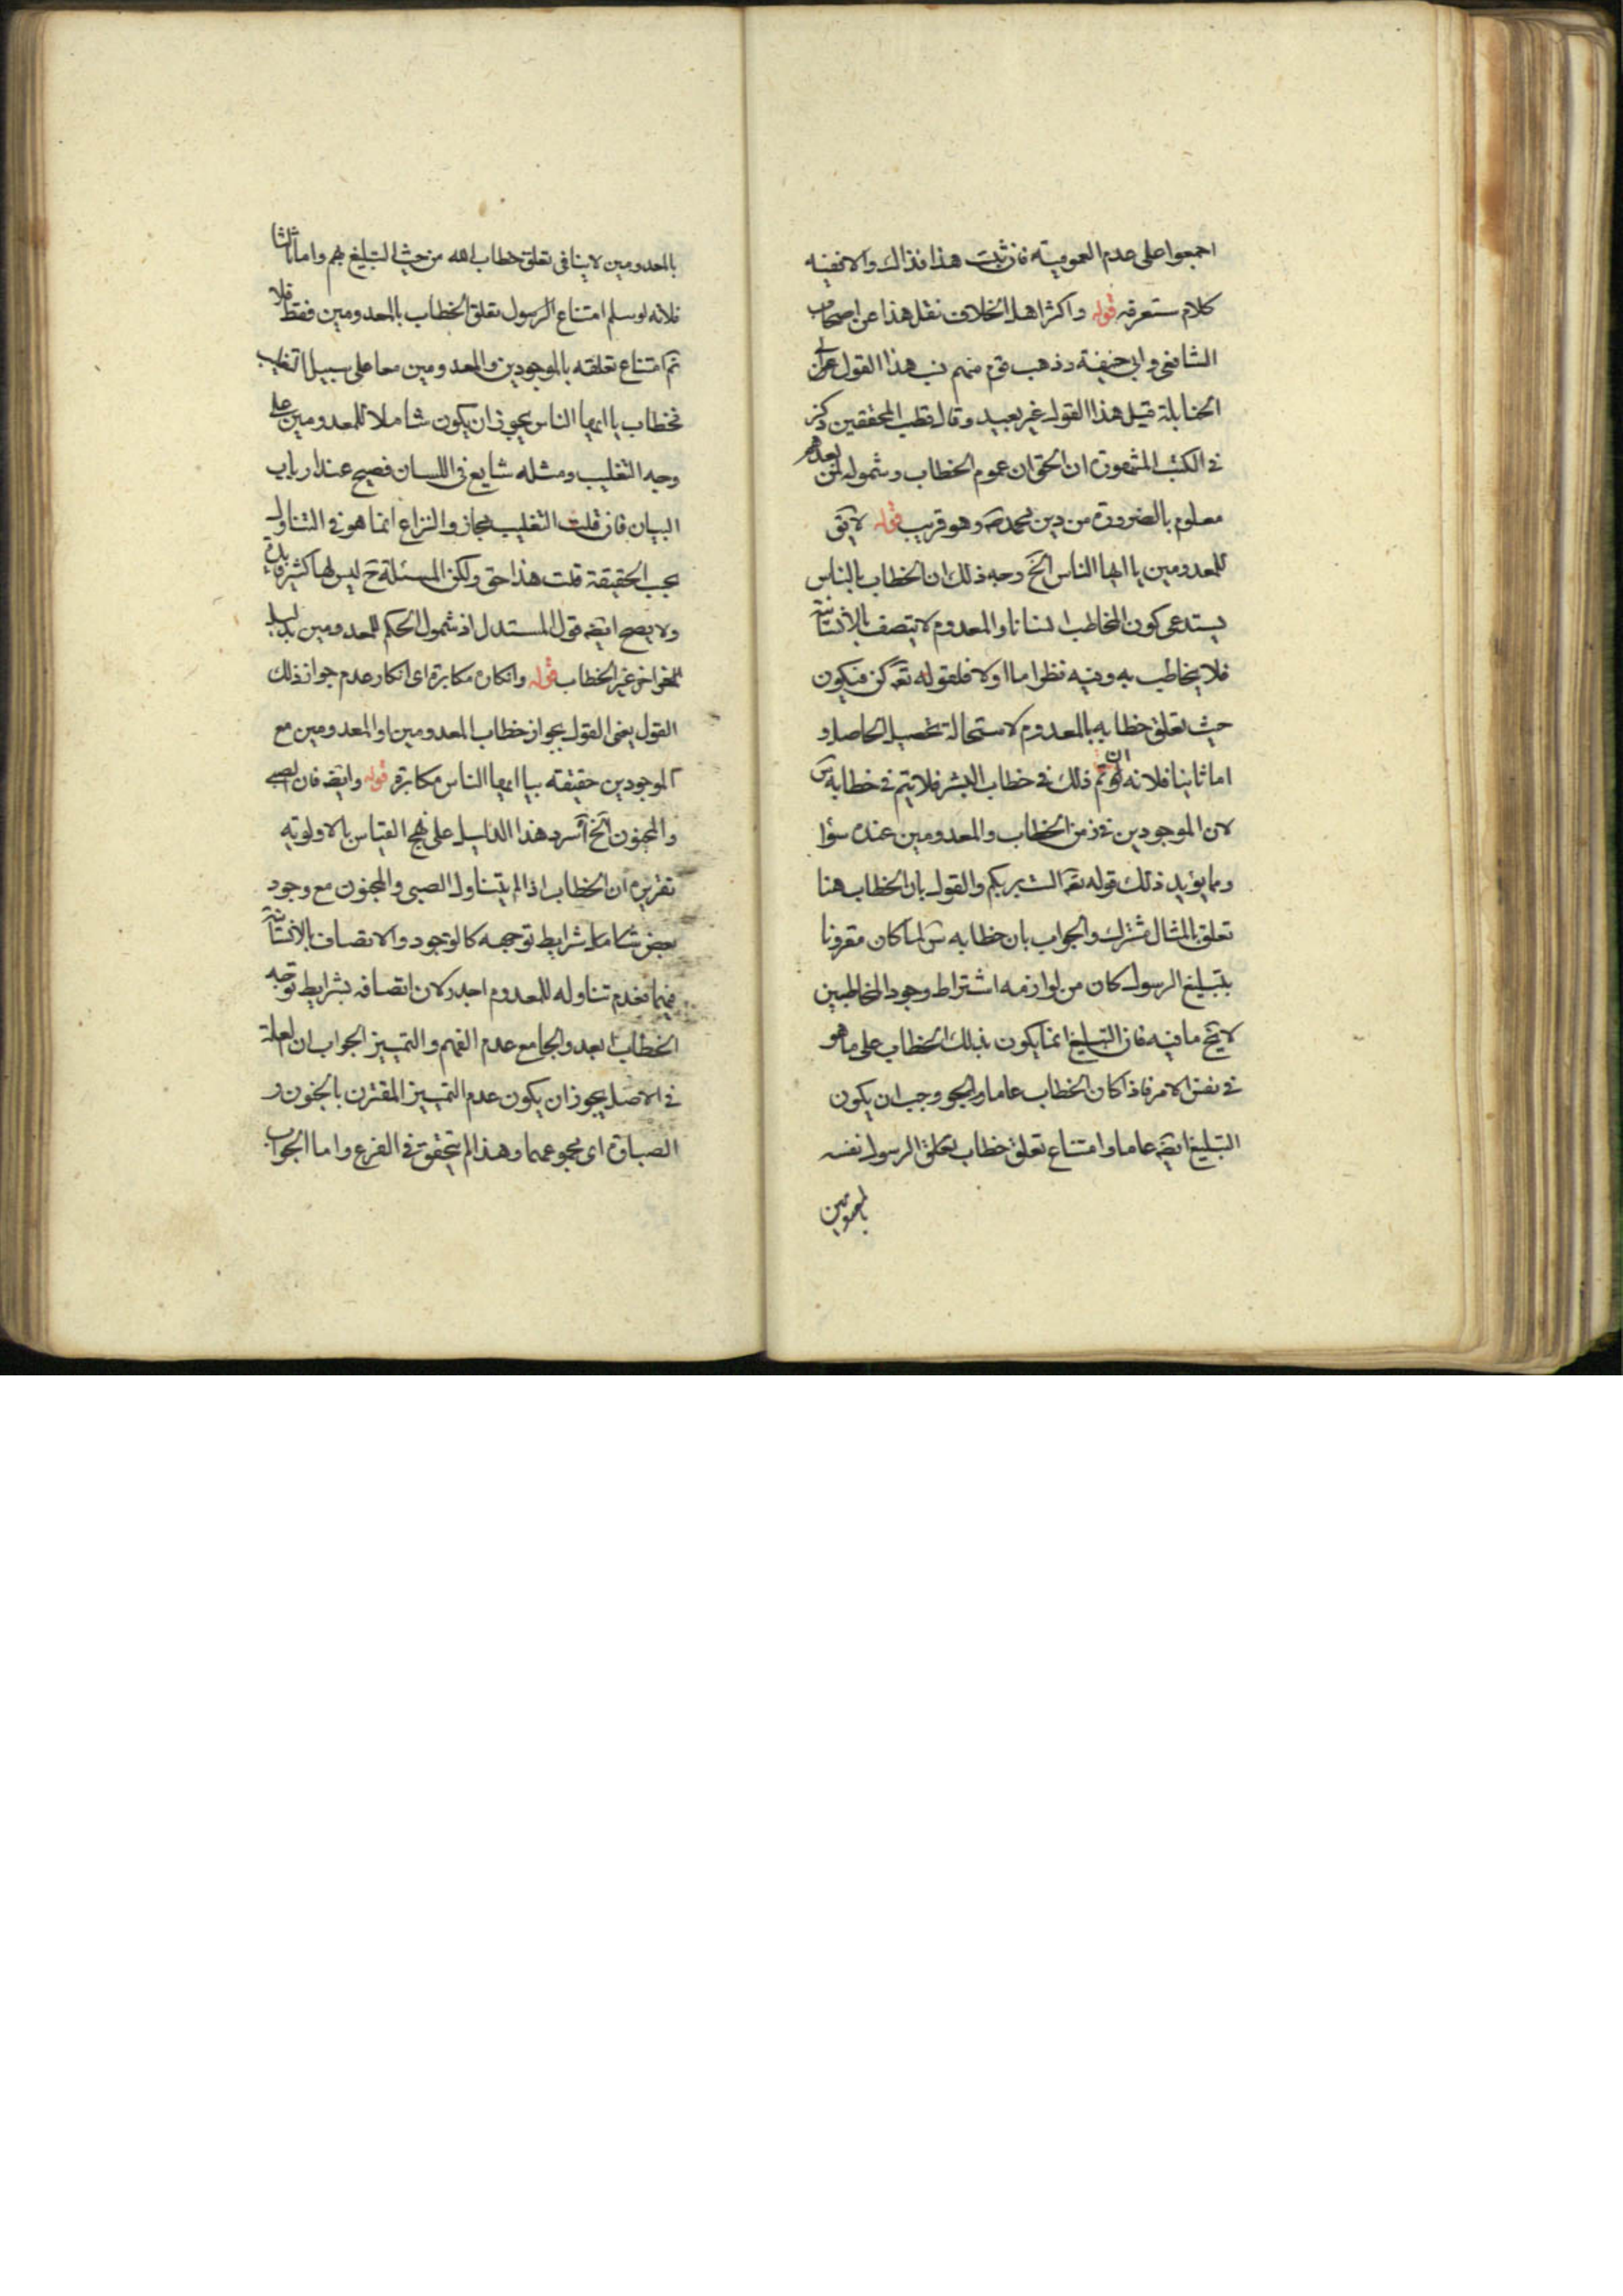 اجمعوا على عدم العمومية فان ثبت هذا فذاك والا ففيه
كلام ستعرفه قوله واكثر اهل الخلاف نقل هذا عن اصحاب
الشافعى وابى حنيفة وذهب قوم منهم نسب هذا القول
الحنابلة قيل هذا القول غير بعيد وقال قطب المحققين ذكر
فى الكتب المشهورة ان الحق ان عموم الخطاب وشموله لمن بعدهم
معلوم بالضرورة من دين محمد ص وهو قريب قوله لا يق
للمعدومين يا ايها الناس الخ وجه ذلك ان الخطاب بالناس
يستدعى كون المخاطب انسانا والمعدوم لا يتصف بالانسانية
فلا يخاطب به وفيه نظر اما اولا فلقوله تعه كن فيكون
حيث تعلق خطابه بالمعدوم لاستحالة تحصيل الحاصل و
اما ثانيا فلانه لو تم ذلك فى خطاب البشر فلا يتم فى خطابه
لان الموجودين فى زمن الخطاب والمعدومين عنده سواء
ومما يؤيد ذلك قوله تعه الست بربكم والقول بان الخطاب هنا
تعلق بالمثال مشترك والجواب بان خطابه لما كان مقرونا
بتبليغ الرسول كان من لوازمه اشتراط وجود المخاطبين
لا يخ ما فيه فان التبليغ انما يكون بذلك الخطاب على ما هو
فى نفس الامر فاذا كان الخطاب عاما وجب ان يكون
التبليغ ايضه عاما وامتناع تعلق خطاب الرسول نفسه
بالمعدومين
بالمعدومين لا ينافى تعلق خطاب الله من حيث التبليغ بهم واما ثالثا
فلانه لو سلم امتناع الرسول تعلق الخطاب بالمعدومين فقط فلا
ثم امتناع تعلقه بالموجودين والمعدومين معا على سبيل التغليب
فخطاب يا ايها الناس يجوز ان يكون شاملا للمعدومين على
وجه التغليب ومثله شايع فى اللسان فصيح عند ارباب
البيان فان قلت التغليب مجاز والنزاع انما هو فى التناول
بحب الحقيقة قلت هذا حق ولكن المسئلة ح ليس لها كثير فائدة
ولا يصح ايضه قول المستدل اذ شمول الحكم للمعدومين بدليل
اخر غير الخطاب قوله وانكاره مكابرة اى انكار عدم جواز ذلك
القول يعنى القول بجواز خطاب المعدومين او المعدومين مع
الموجودين حقيقته بيا ايها الناس مكابرة قوله وايضه فان الصبى
والمجنون الخ اسرد هذا الدليل على نهج القياس بالاولوية
تقريره ان الخطاب اذا لم يتناول الصبى والمجنون مع وجود
بعض شرايط توجهه كالوجود والاتصاف بالانسانية
فيهما فعدم تناوله للمعدوم اجدر لان اتصافه بشرايط توجه
الخطاب ابعد والجامع عدم الفهم والتمييز الجواب ان لعلة
فى الاصل يجوز ان يكون عدم التمييز المقترن بالجنون و
الصباوة اى مجموعهما وهذا لم يتحقق فى الفرع واما الجواب